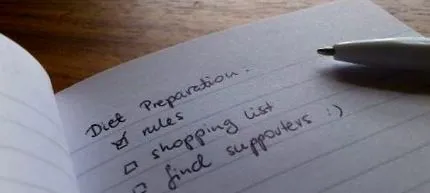 Diet Preparation:
☑ rules
☐ shopping list
☐ find supporters :)